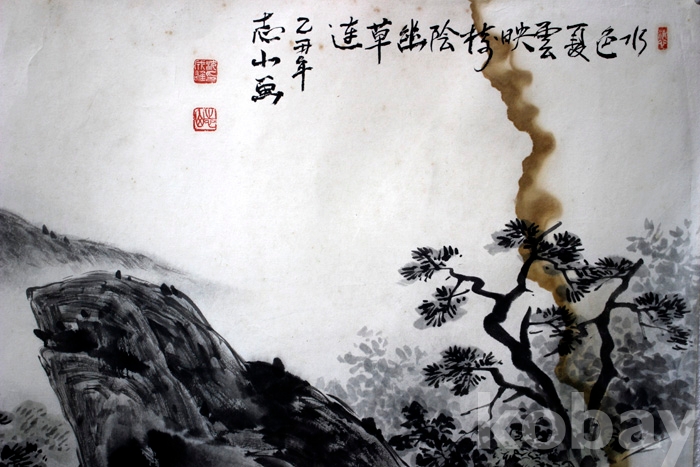 水色夏雲映樹陰幽草連
乙丑年
志山畵
kobay